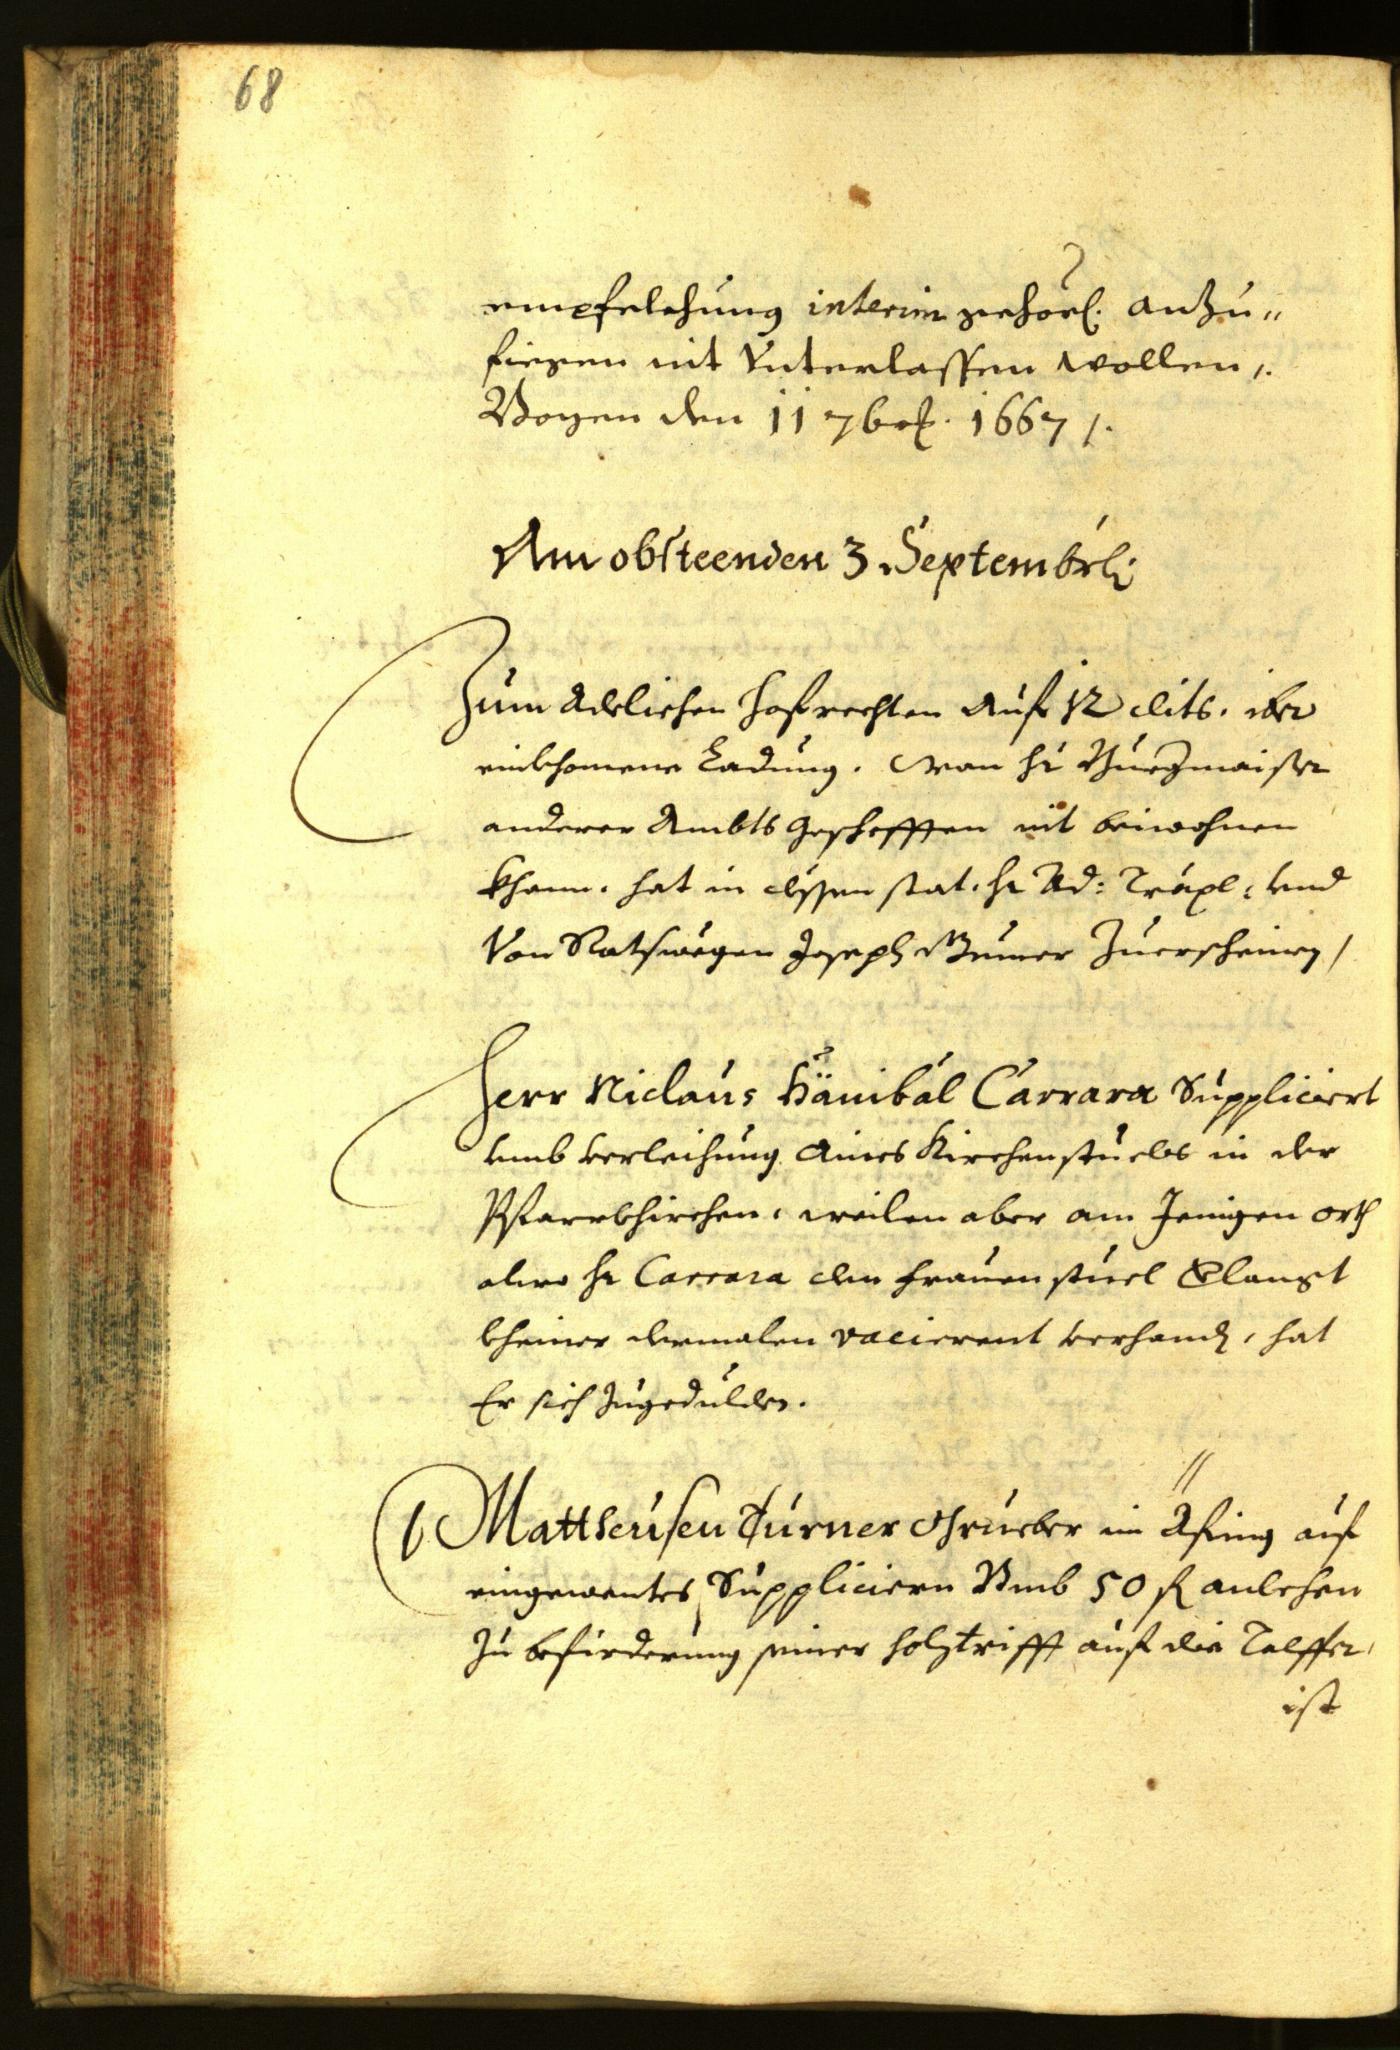 68
empfelchung interim gehörl. anzu„
fiegen nit Vnterlassen wollen /.
Bozen den 11 7br. 1667 /.
Am obsteenden 3 Septembris
Zum Adelichen Hofrechten Auf 12 dits. iber
einkhomene Ladung. Wan hr Burgmaister
anderer Ambts geschefften nit beiwohnen
khann. hat in dessen stat. hr Ad: Träxl: vnd
Von Ratswegen Joseph Gumer Zuerscheinen /
Herr Niclaus Hänibal Carrara Suppliciert
vmb verleihung Aines Kirchenstuels in der
Pfarrkhirchen, weilen aber am Jenigen orth
alwo hr Carrara den frauen stuel Erlangt
kheiner dermalen vacierent verhandten, hat
Er sich Zugedulden.
Mattheusen Turner Grueber in Afing auf
eingewentes Supplicieren Vmb 50 fl anlehen
Zu befirderung seiner holztrifft auf die Talffer,
ist